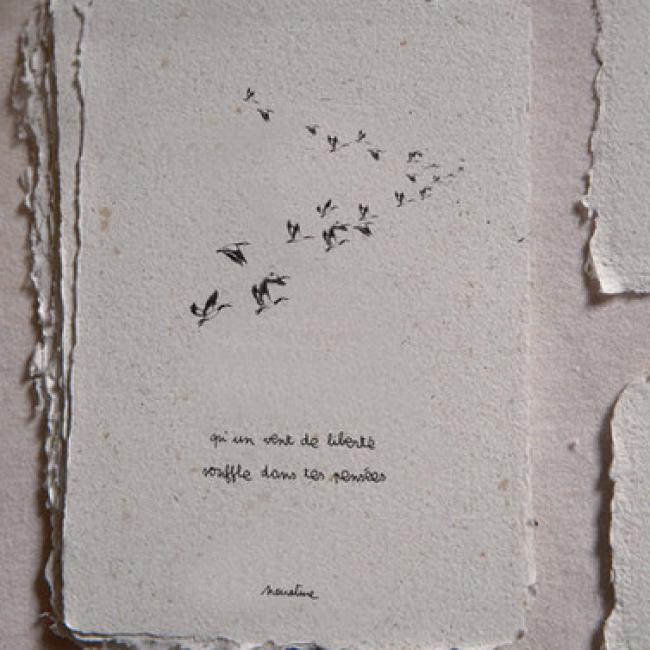 qu'un vent de liberté
souffle dans tes pensées